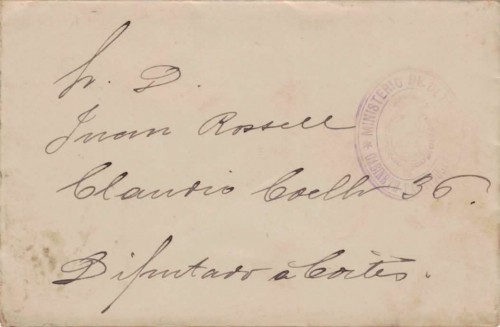 Sr. D.
Juan Rossell
Claudio Coello 36.
Diputado á Cortes.
MINISTERIO DE